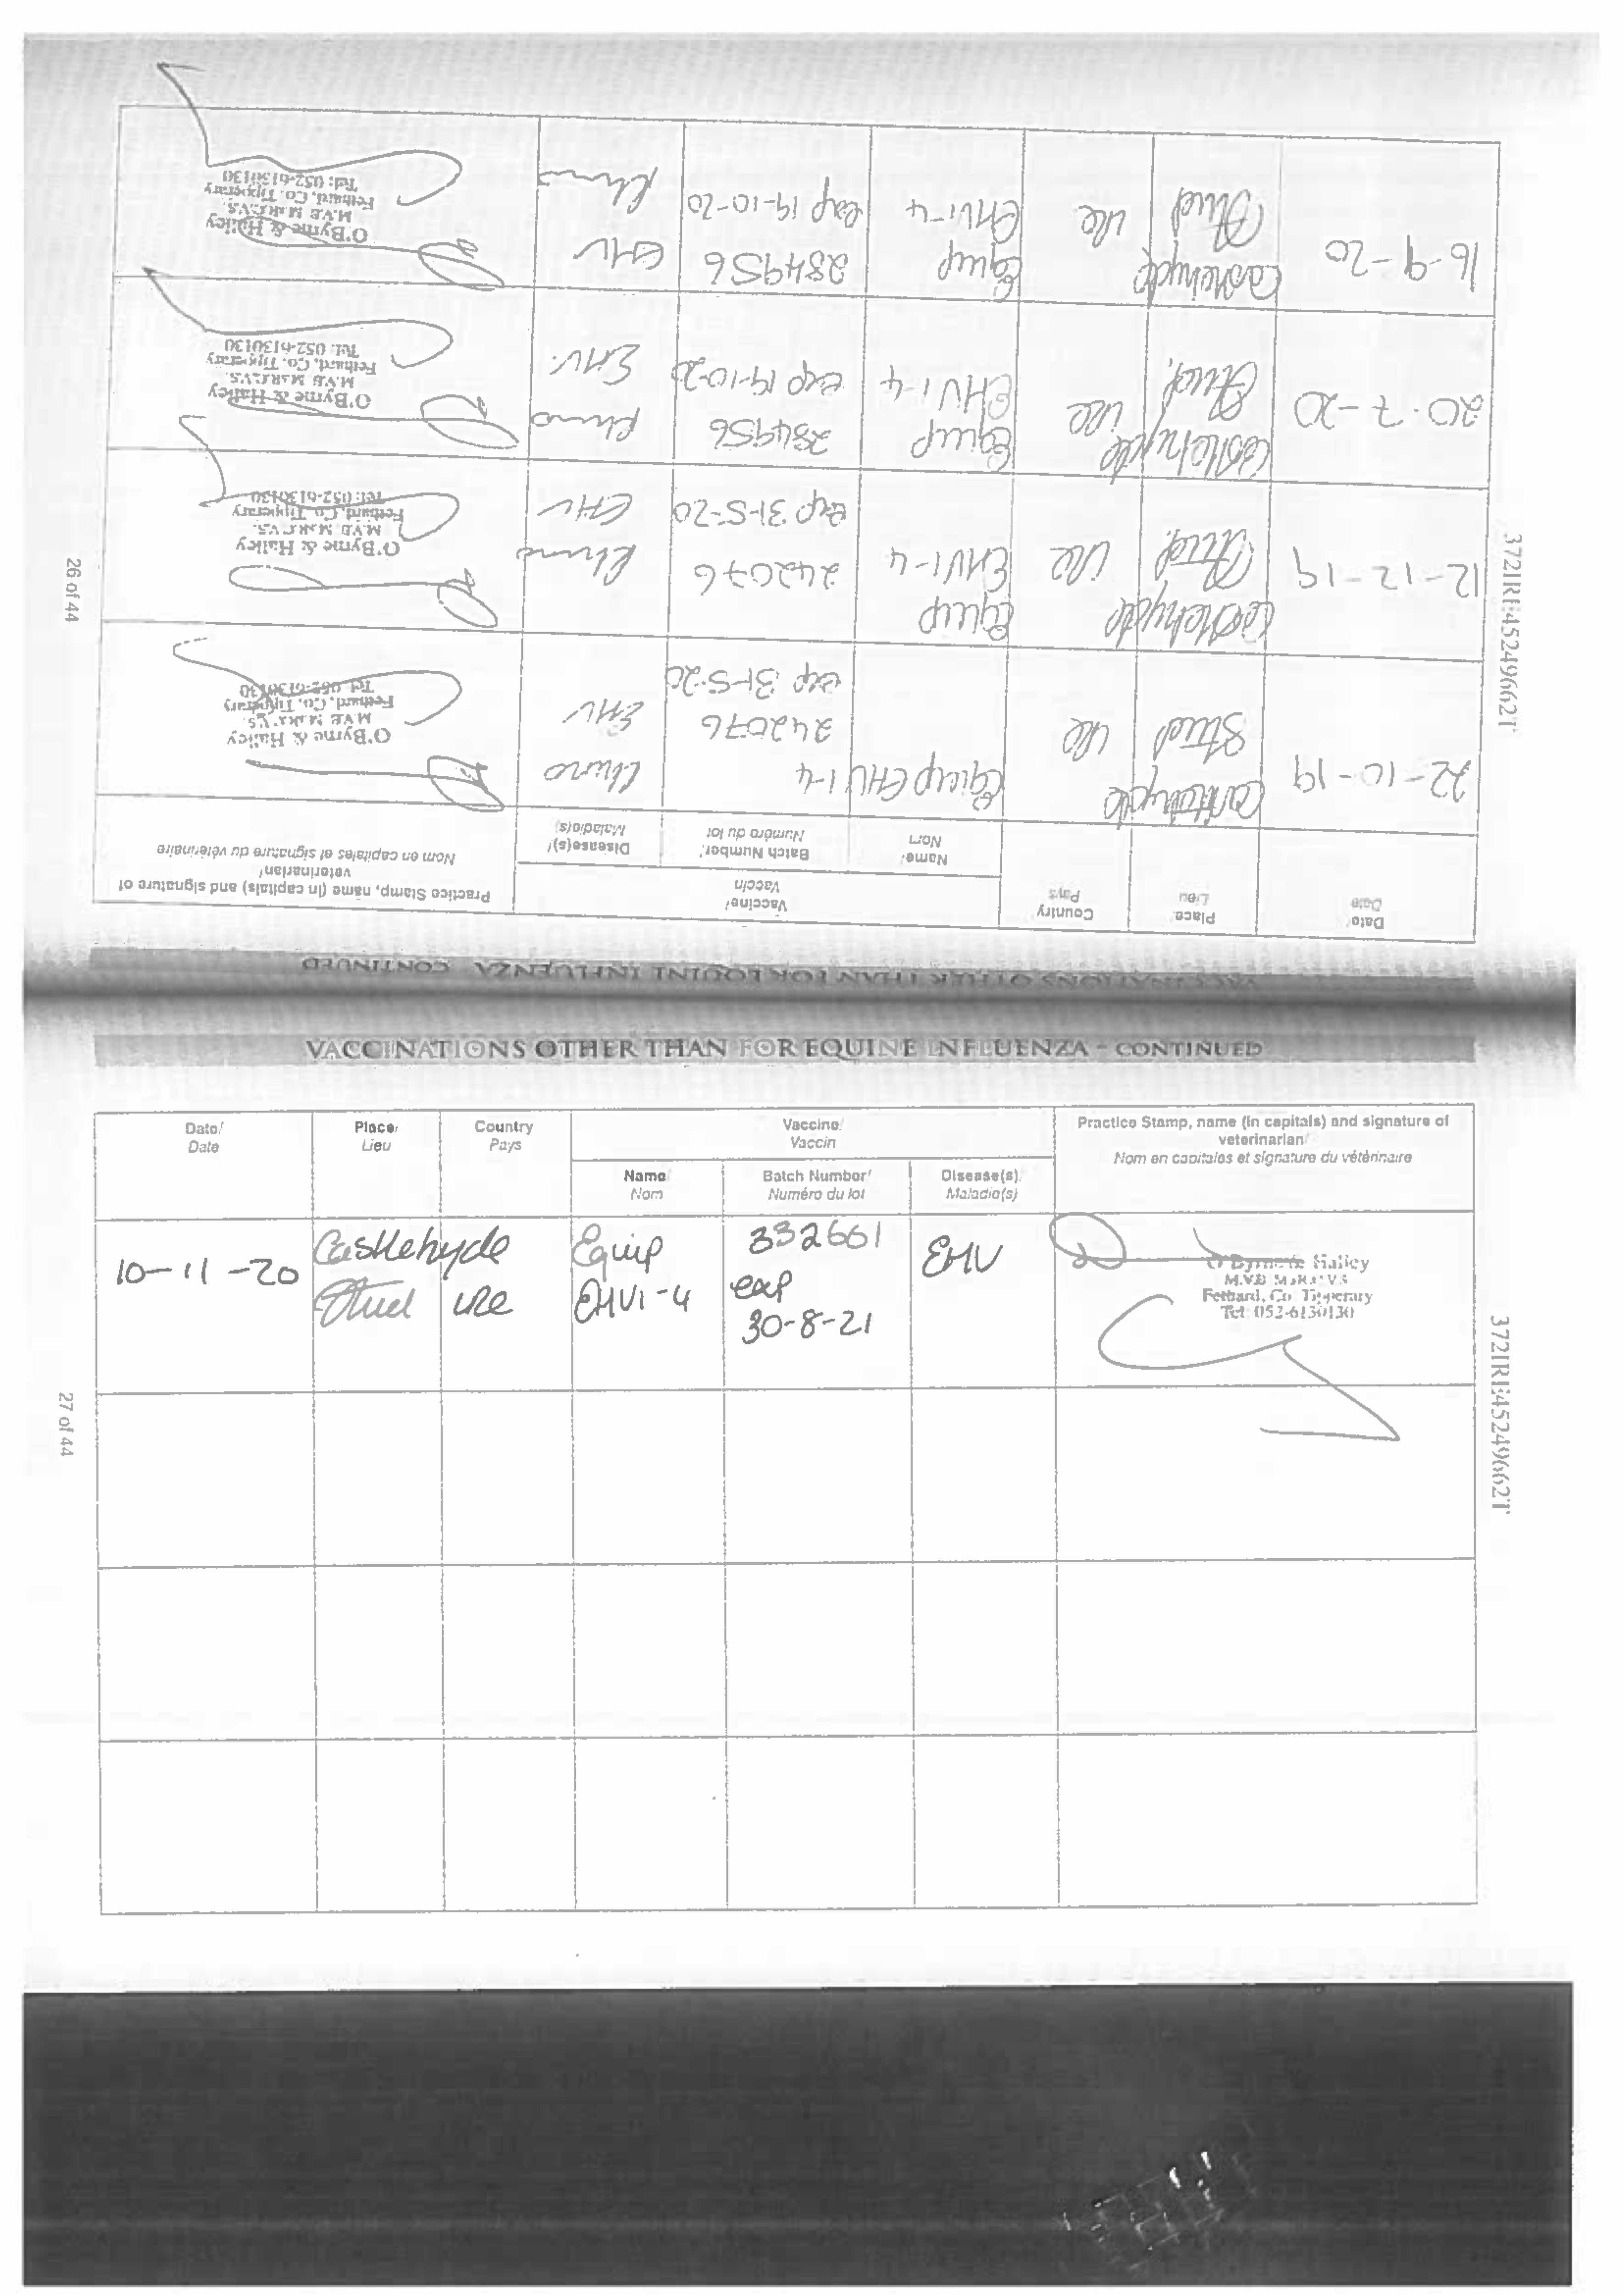 VACCINATIONS OTHER THAN FOR EQUINE INFLUENZA - CONTINUED
Date/
Date
Place/
Lieu
Country
Pays
Vaccine/
Vaccin
Name/
Nom
Batch Number/
Numéro du lot
Disease(s)/
Maladie(s)
Practice Stamp, name (in capitals) and signature of
veterinarian/
Nom en capitales et signature du vétérinaire
22-10-19
Castlehyde
Stud
IRE
Equip EHV 1-4
242076
exp 31-5-20
Rhino
EHV
O'Byrne & Halley
M.V.B M.R.C.V.S.
Fethard, Co. Tipperary
Tel: 052-6130130
12-12-19
Castlehyde
Stud,
IRE
Equip
EHV1-4
242076
exp 31-5-20
Rhino
EHV
O'Byrne & Halley
M.V.B M.R.C.V.S.
Fethard, Co. Tipperary
Tel: 052-6130130
20.7-20
Castlehyde
Stud,
IRE
Equip
EHV1-4
284956
exp 19-10-20
Rhino
EHV.
O'Byrne & Halley
M.V.B M.R.C.V.S.
Fethard, Co. Tipperary
Tel: 052-6130130
16-9-20
Castlehyde
Stud
IRE
Equip
EHV1-4
284956
exp 19-10-20
EHV
Rhino
O'Byrne & Halley
M.V.B M.R.C.V.S.
Fethard, Co. Tipperary
Tel: 052-6130130
26 of 44
372IRE45249662T
VACCINATIONS OTHER THAN FOR EQUINE INFLUENZA - CONTINUED
Date/
Date
Place/
Lieu
Country
Pays
Vaccine/
Vaccin
Name/
Nom
Batch Number/
Numéro du lot
Disease(s)/
Maladie(s)
Practice Stamp, name (in capitals) and signature of
veterinarian/
Nom en capitales et signature du vétérinaire
10-11-20
Castlehyde
Stud
IRE
Equip
EHV1-4
332661
exp
30-8-21
EHV
O'Byrne & Halley
M.V.B M.R.C.V.S
Fethard, Co. Tipperary
Tel: 052-6130130
27 of 44
372IRE45249662T